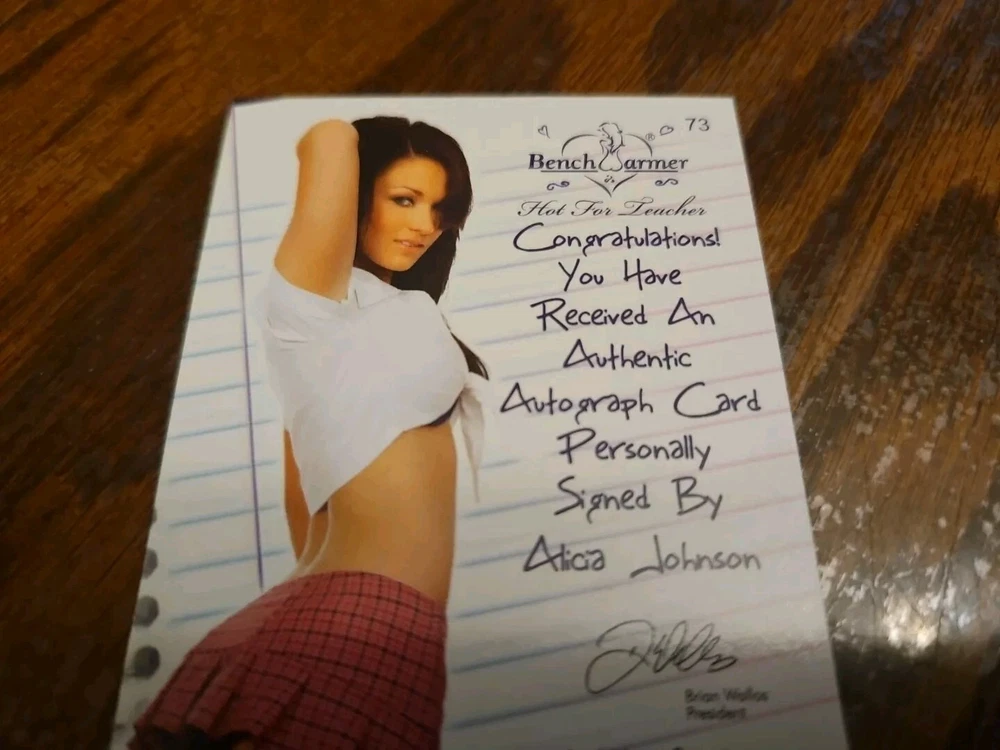 73
BenchWarmer ®
Hot For Teacher
Congratulations!
You Have
Received An
Authentic
Autograph Card
Personally
Signed By
Alicia Johnson
Brian Wallos
President